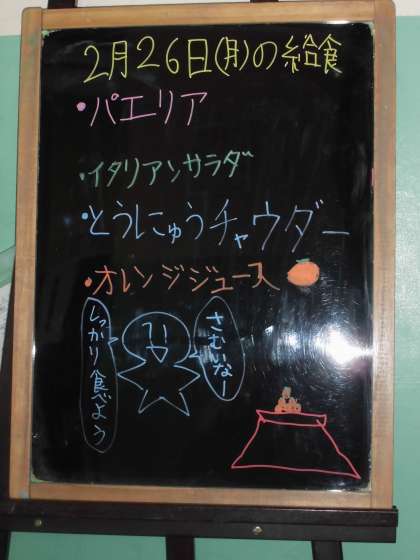 2月26日(月)の給食
・パエリア
・イタリアンサラダ
・とうにゅうチャウダー
・オレンジジュース
さむいなー
しっかり食べよう